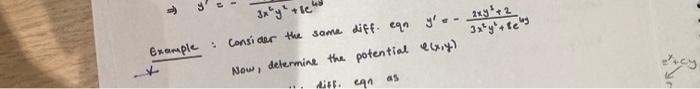 ⇒ y' = - / 3x²y² + 8e⁴ʸ
Example : Consider the same diff. eqn y' = - 2xy³ + 2 / 3x²y² + 8e⁴ʸ
Now, determine the potential φ(x,y)
diff. eqn as
eˣ + cy